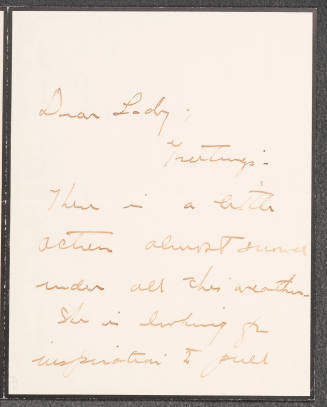 Dear Lady;
Greetings:
There is a little
actress almost snowed
under all this weather.
She is looking for
inspiration to pull